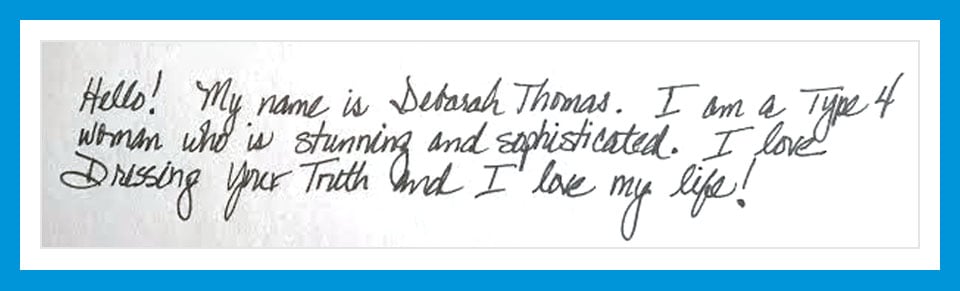 Hello! My name is Deborah Thomas. I am a Type 4
woman who is stunning and sophisticated. I love
Dressing Your Truth and I love my life!